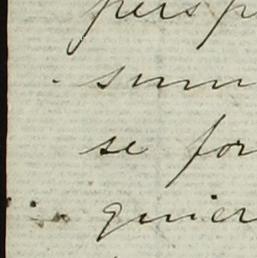 persp
sum
se for
quier